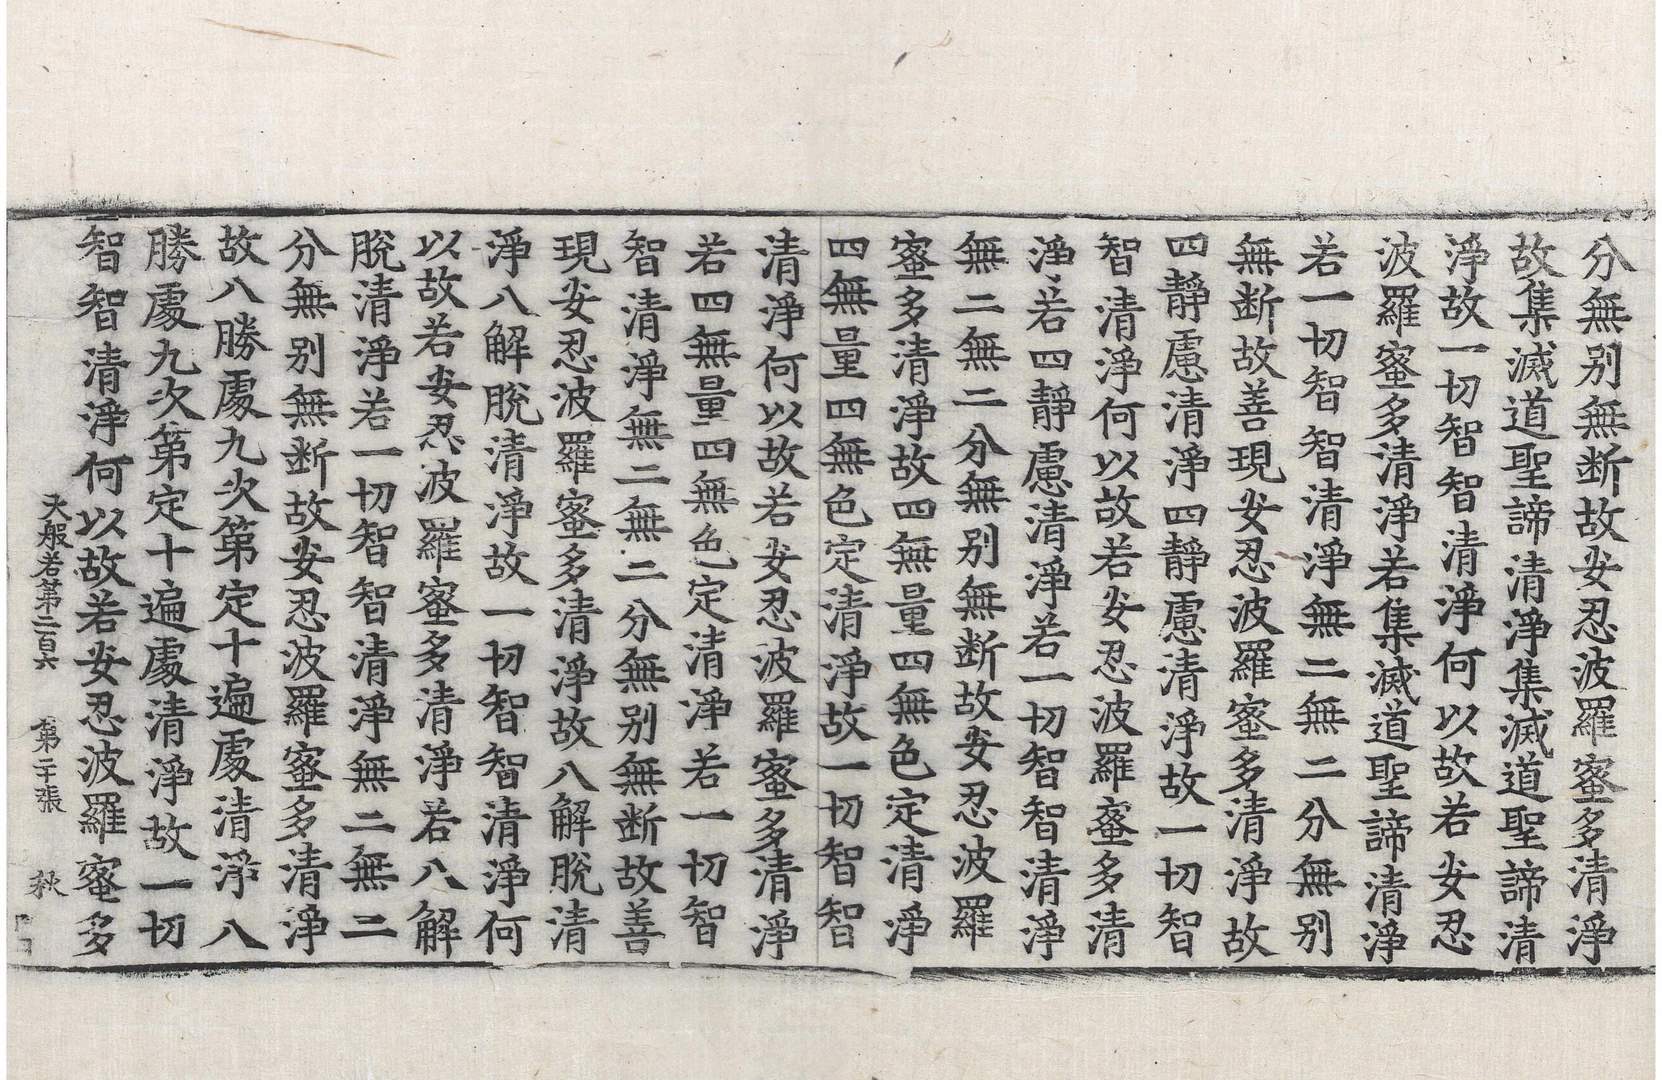 分無别無断故安忍波羅蜜多清淨
故集滅道聖諦清淨集滅道聖諦清
淨故一切智智清淨何以故若安忍
波羅蜜多清淨若集滅道聖諦清淨
若一切智智清淨無二無二分無别
無断故善現安忍波羅蜜多清淨故
四靜慮清淨四靜慮清淨故一切智
智清淨何以故若安忍波羅蜜多清
淨若四靜慮清淨若一切智智清淨
無二無二分無别無断故安忍波羅
蜜多清淨故四無量四無色定清淨
四無量四無色定清淨故一切智智
清淨何以故若安忍波羅蜜多清淨
若四無量四無色定清淨若一切智
智清淨無二無二分無别無断故善
現安忍波羅蜜多清淨故八解脫清
淨八解脫清淨故一切智智清淨何
以故若安忍波羅蜜多清淨若八解
脫清淨若一切智智清淨無二無二
分無别無断故安忍波羅蜜多清淨
故八勝處九次第定十遍處清淨八
勝處九次第定十遍處清淨故一切
智智清淨何以故若安忍波羅蜜多
大般若第二百六 第二十張